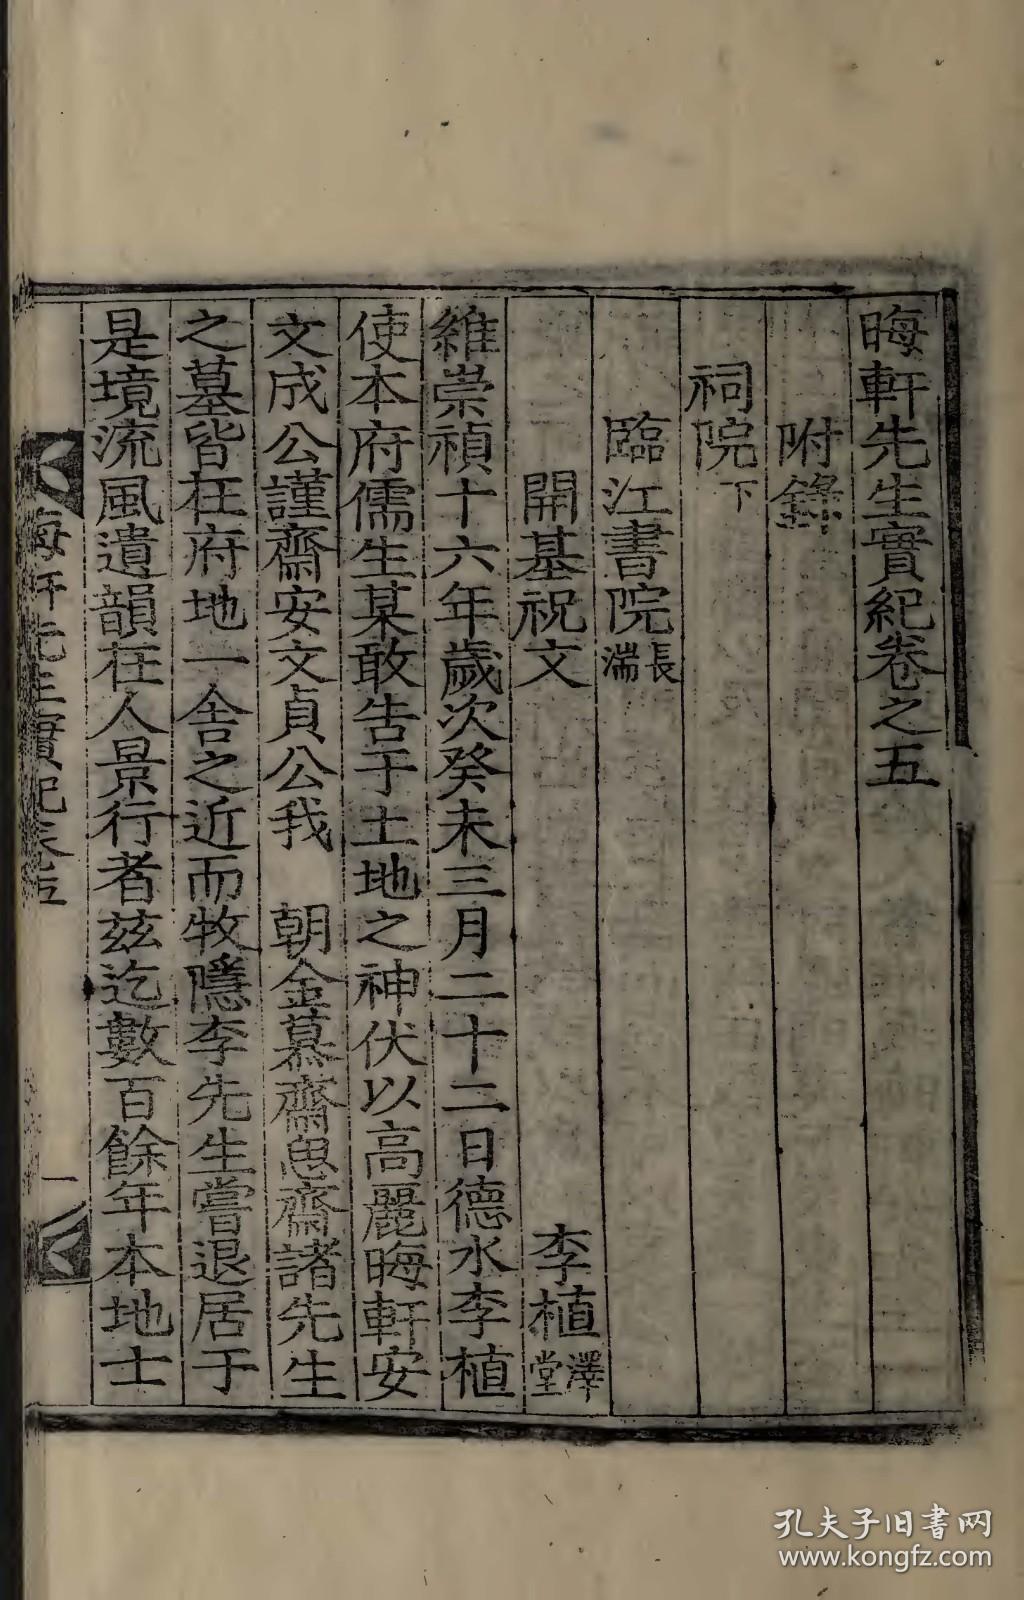 晦軒先生實紀卷之五
附錄
祠院下
臨江書院長湍
開基祝文 李植澤堂
維崇禎十六年歲次癸未三月二十二日德水李植
使本府儒生某敢告于土地之神伏以高麗晦軒安
文成公謹齋安文貞公我 朝金慕齋思齋諸先生
之墓皆在府地一舍之近而牧隱李先生嘗退居于
是境流風遺韻在人景行者玆迄數百餘年本地士
晦軒先生實紀卷五 一
孔夫子旧書网
www.kongfz.com